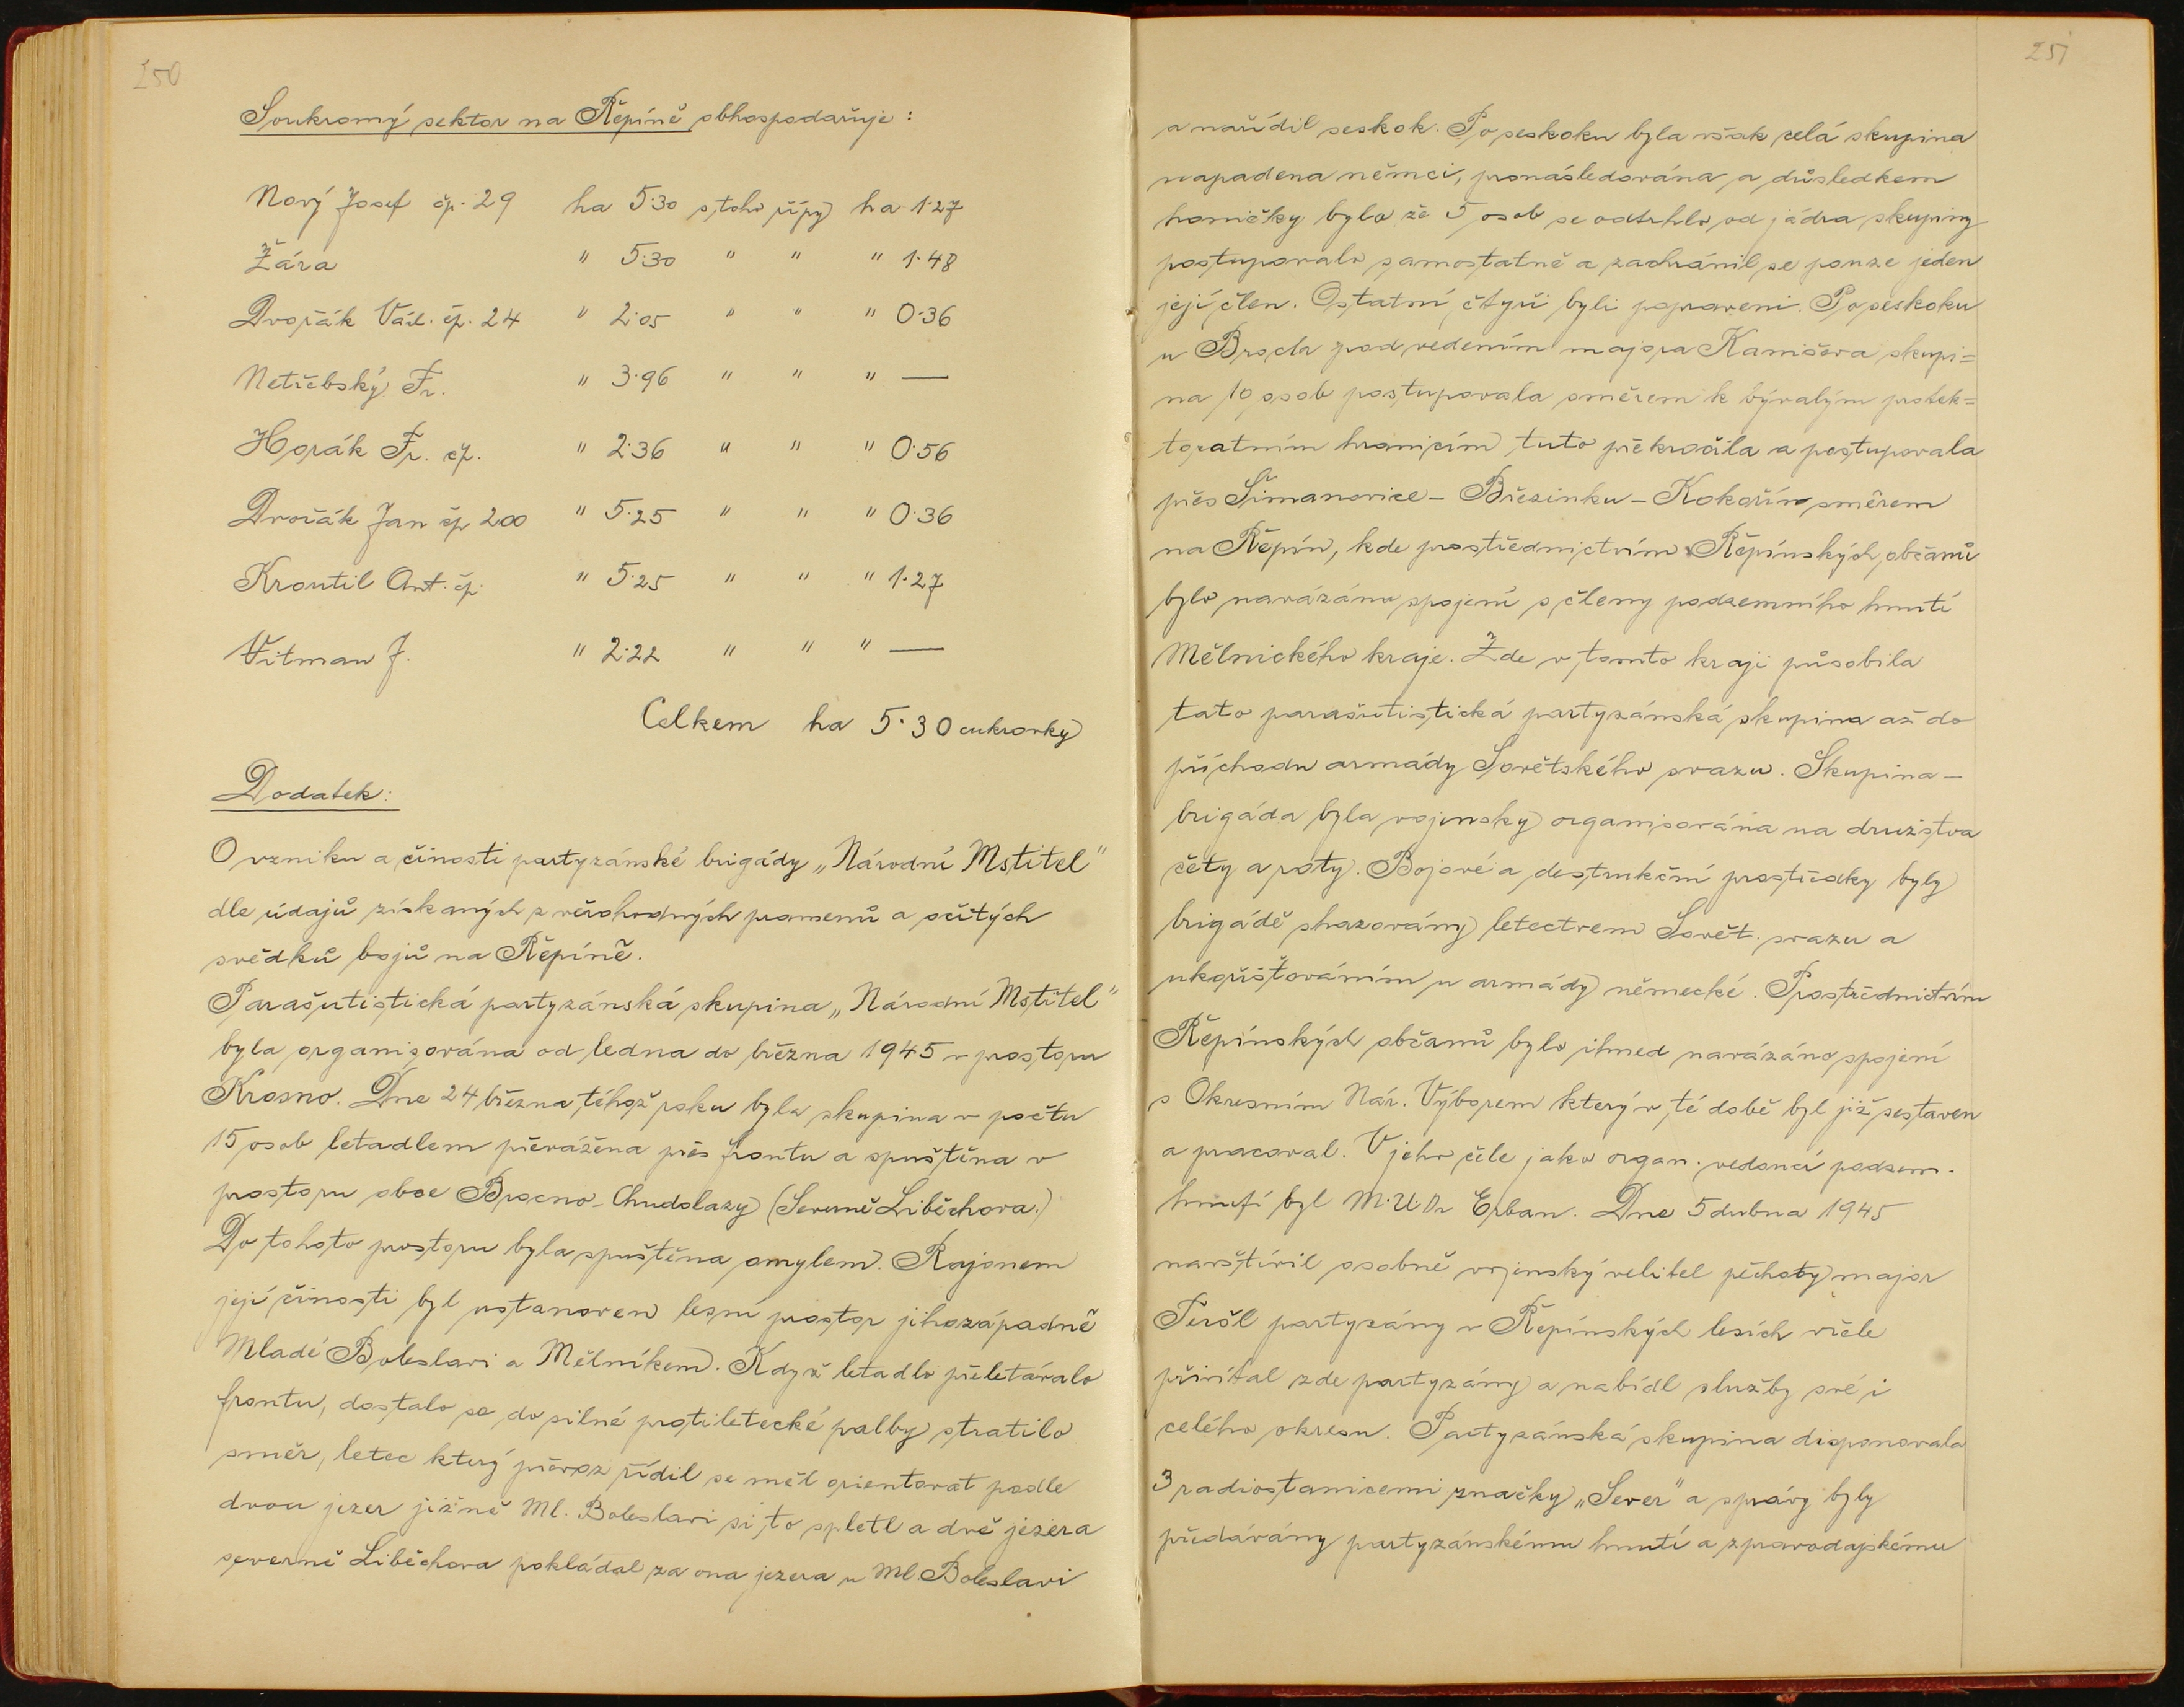 250
Soukromý sektor na Řepíně obhospodařuje:
Nový Josef čp. 29 ha 5·30 z toho řípy ha 1·27
Žára " 5·30 " " " 1·48
Dvořák Václ. čp. 24 " 2·05 " " " 0·36
Netřebský Fr. " 3·96 " " " —
Horák Fr. čp. " 2·36 " " " 0·56
Dvořák Jan čp 200 " 5·25 " " " 0·36
Kroutil Ant. čp. " 5·25 " " " 1·27
Vitman J. " 2·22 " " " —
Celkem ha 5·30 cukrovky
Dodatek:
O vzniku a činosti partyzánské brigády „Národní Mstitel"
dle údajů získaných z věrohodných pramenů a očitých
svědků bojů na Řepíně.
Parašutistická partyzánská skupina „Národní Mstitel"
byla organisována od ledna do března 1945 v prostoru
Krosno. Dne 24 března téhož roku byla skupina v počtu
15 osob letadlem převážena přes frontu a spuštěna v
prostoru obce Brocno - Chudolazy (Severně Liběchova.)
Do tohoto prostoru byla spuštěna omylem. Rajonem
její činosti byl ustanoven lesní prostor jihozápadně
Mladé Boleslavi a Mělníkem. Když letadlo přeletávalo
frontu, dostalo se do silné protiletecké palby stratilo
směr, letec který převoz řídil se měl orientovat podle
dvou jezer jižně Ml. Boleslavi si to spletl a dvě jezera
severně Liběchova pokládal za ona jezera u Ml. Boleslavi
251
a nařídil seskok. Po seskoku byla však celá skupina
napadena němci, pronásledována a důsledkem
honičky bylo že 5 osob se odtrhlo od jádra skupiny
postupovalo samostatně a zachránil se pouze jeden
její člen. Ostatní čtyři byli popraveni. Po seskoku
u Brocna pod vedením majora Kamišova skupi=
na 10 osob postupovala směrem k bývalým protek=
toratním hranicím tuto překročila a postupovala
přes Šimanovice - Březinku - Kokořín směrem
na Řepín, kde prostřednictvím Řepínských občanů
bylo navázáno spojení s členy podzemního hnutí
Mělnického kraje. Zde v tomto kraji působila
tato parašutistická partyzánská skupina až do
příchodu armády Sovětského svazu. Skupina -
brigáda byla vojensky organisována na družstva
čety a roty. Bojové a destrukční prostředky byly
brigádě shazovány letectvem Sovět. svazu a
ukořišťováním u armády německé. Prostřednictvím
Řepínských občanů bylo ihned navázáno spojení
s Okresním Nár. Výborem který v té době byl již sestaven
a pracoval. V jeho čele jako organ. vedoucí podzem.
hnutí byl M.U.Dr Erban. Dne 5 dubna 1945
navštívil osobně vojenský velitel pěchoty major
partyzány v Řepínských lesích vřele
přivítal zde partyzány a nabídl služby své i
celého okresu. Partyzánská skupina disponovala
3 radiostanicemi značky „Sever" a zprávy byly
předávány partyzánskému hnutí a zpravodajskému